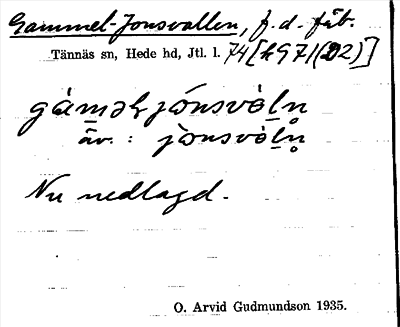 Gammel-Jonsvallen, f.d. fäb.
Tännäs sn, Hede hd, Jtl. l. 74 [h971(D2)]
gàməl jónsvàl̥n̥
äv. : jònsvàl̥n̥
Nu nedlagd.
O. Arvid Gudmundson 1935.